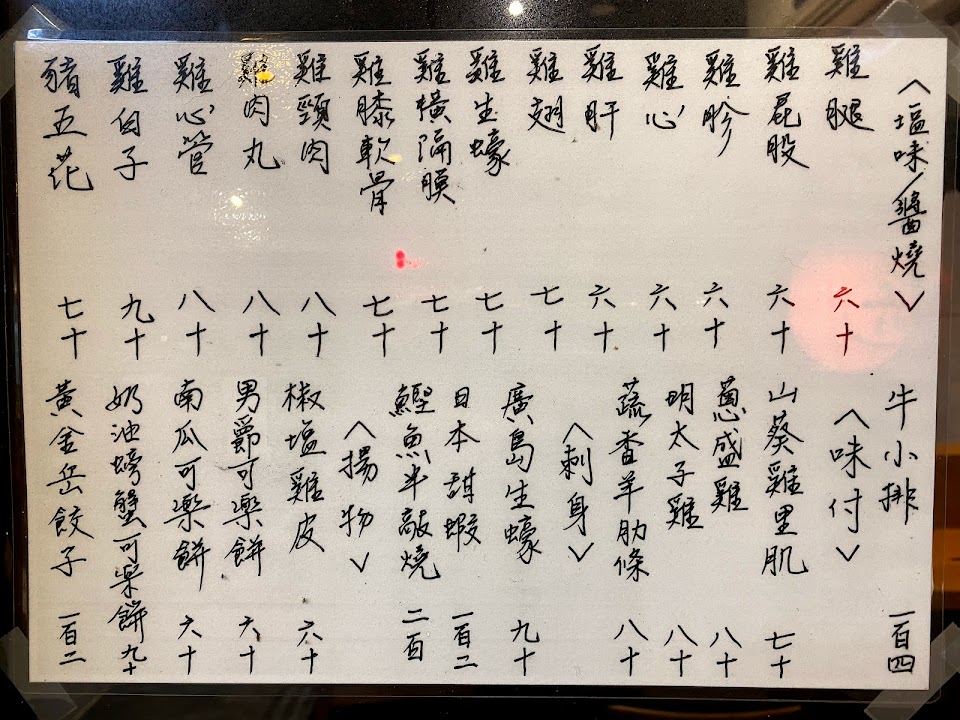 〈塩味/醬燒〉
雞腿 六十
雞屁股 六十
雞胗 六十
雞心 六十
雞肝 六十
雞翅 七十
雞生蠔 七十
雞橫隔膜 七十
雞膝軟骨 七十
雞頸肉 八十
雞肉丸 八十
雞心管 八十
雞白子 九十
豬五花 七十
牛小排 一百四
〈味付〉
山葵雞里肌 七十
蔥盛雞 八十
明太子雞 八十
蔬香羊肋條 八十
〈刺身〉
廣島生蠔 九十
日本甜蝦 一百二
鰹魚半敲燒 二百
〈揚物〉
椒塩雞皮 六十
男爵可樂餅 六十
南瓜可樂餅 六十
奶油螃蟹可樂餅 九十
黃金岳餃子 一百二